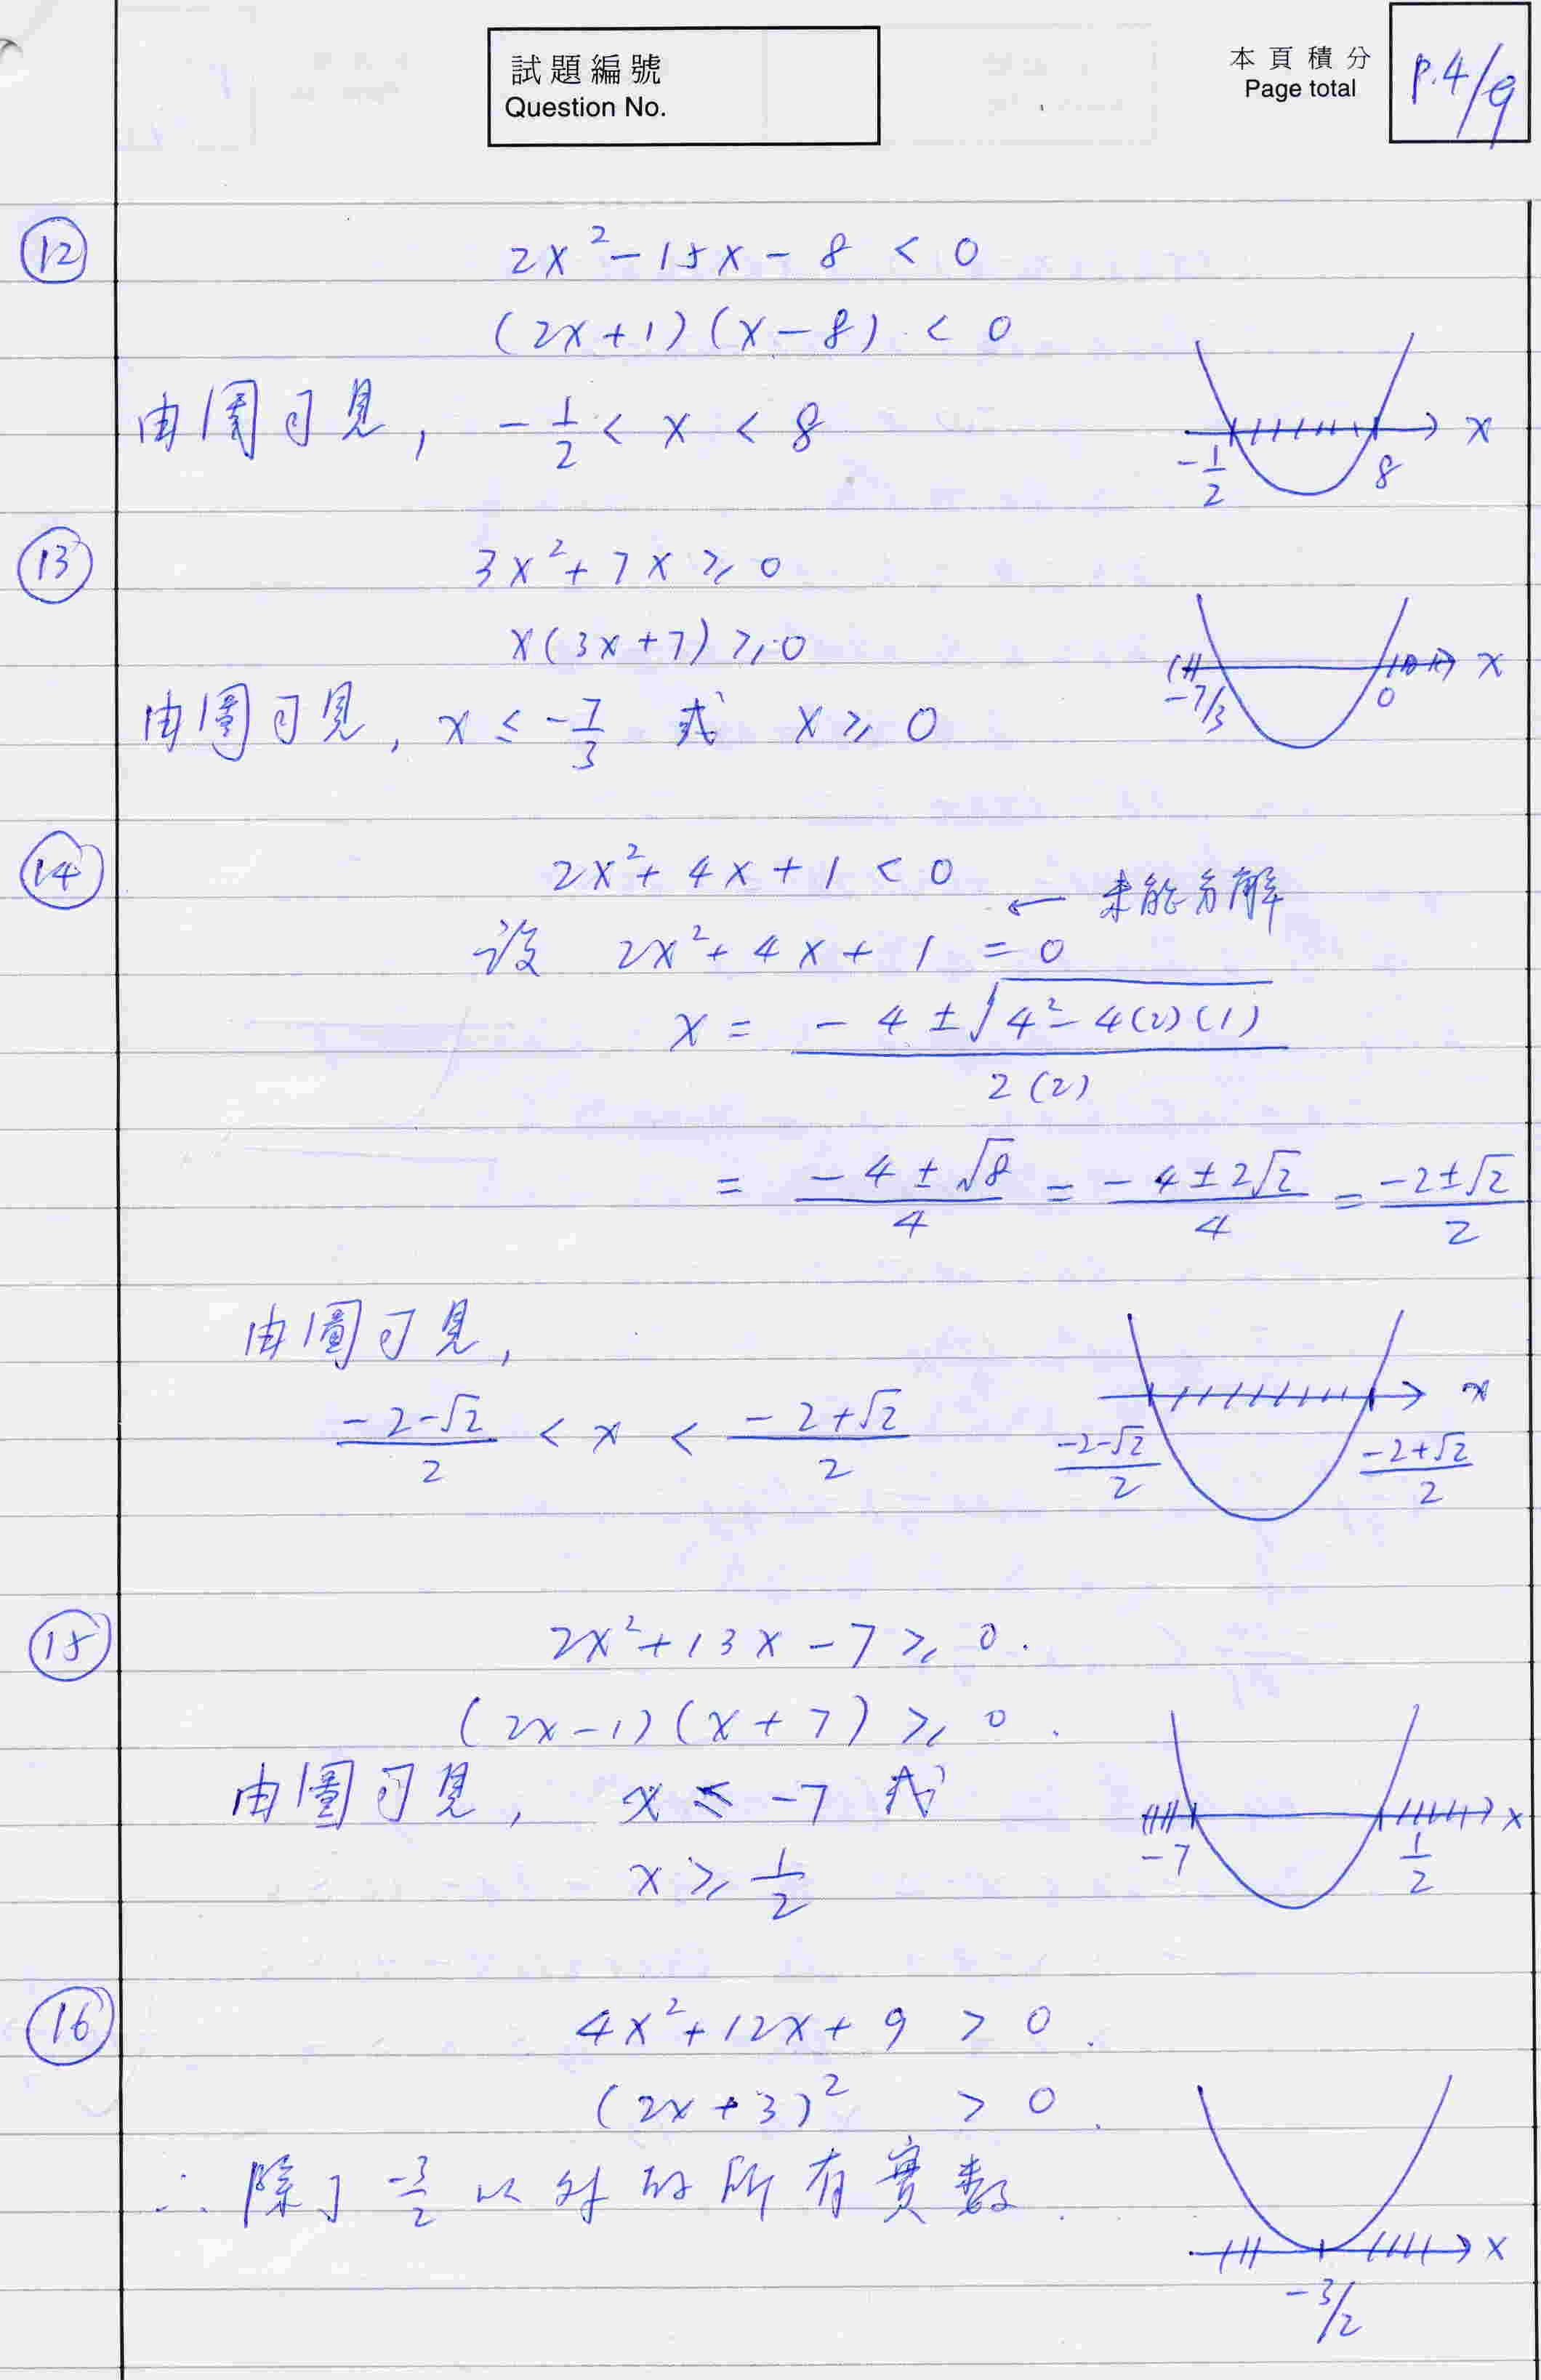 試題編號
Question No.
本頁積分
Page total
P.4/9
⑫ 2x² - 15x - 8 < 0
(2x+1)(x-8) < 0
由圖可見, -1/2 < x < 8
x
-1/2 8
⑬ 3x² + 7x ≥ 0
x(3x+7) ≥ 0
x
-7/3 0
由圖可見, x ≤ -7/3 或 x ≥ 0
⑭ 2x² + 4x + 1 < 0
← 未能分解
設 2x² + 4x + 1 = 0
x = (-4 ± √(4² - 4(2)(1))) / 2(2)
= (-4 ± √8)/4 = (-4 ± 2√2)/4 = (-2 ± √2)/2
由圖可見,
x
(-2-√2)/2 < x < (-2+√2)/2
(-2-√2)/2 (-2+√2)/2
⑮ 2x² + 13x - 7 ≥ 0.
(2x-1)(x+7) ≥ 0.
由圖可見, x ≤ -7 或
x
-7 1/2
x ≥ 1/2
⑯ 4x² + 12x + 9 > 0.
(2x+3)² > 0.
∴ 除了 -3/2 以外的所有實數.
x
-3/2